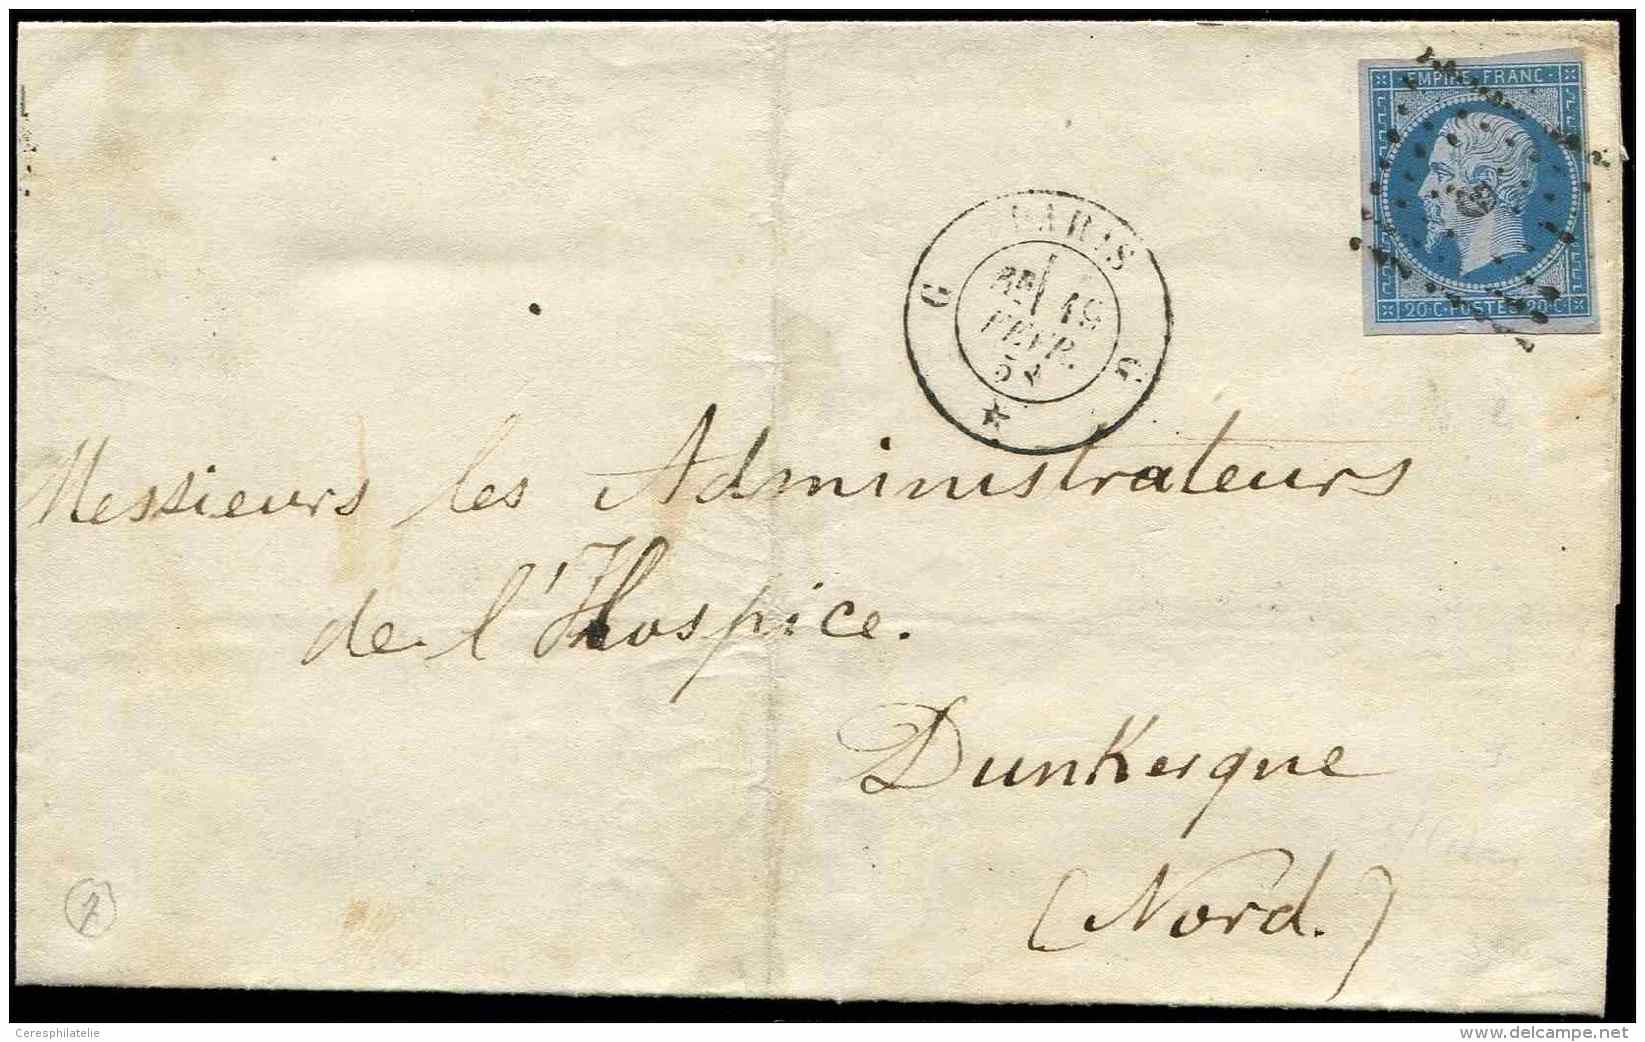 EMPIRE FRANC
20 C POSTES 20 C
PARIS
G G
19
FEVR.
Messieurs les Administrateurs
de l'Hospice.
Dunkerque
(Nord.)
Ceresphilatelie
delcampe.net